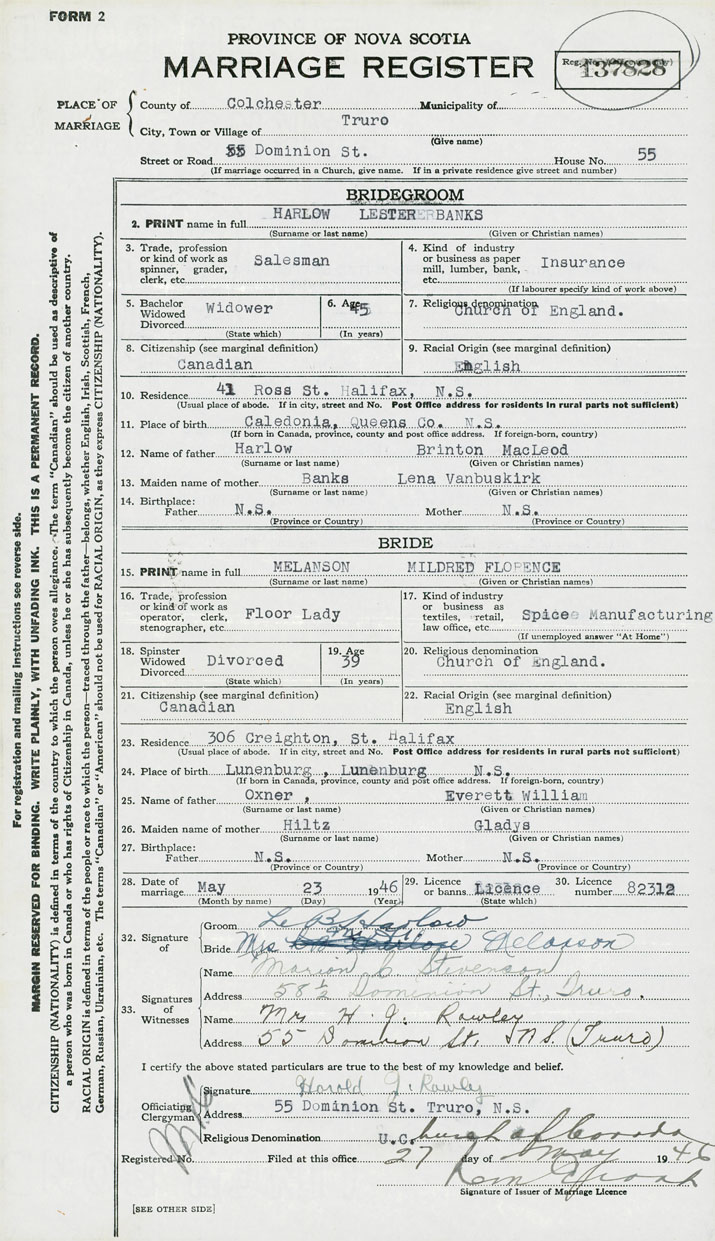 FORM 2
PROVINCE OF NOVA SCOTIA
MARRIAGE REGISTER
137828
PLACE OF MARRIAGE
County of Colchester Municipality of
City, Town or Village of Truro
(Give name)
Street or Road 55 Dominion St. House No. 55
(If marriage occurred in a Church, give name. If in a private residence give street and number)
BRIDEGROOM
2. PRINT name in full HARLOW LESTER BANKS
(Surname or last name) (Given or Christian names)
3. Trade, profession or kind of work as spinner, grader, clerk, etc. Salesman
4. Kind of industry or business as paper mill, lumber, bank, etc. Insurance
(If labourer specify kind of work above)
5. Bachelor Widowed Divorced Widower
(State which)
6. Age 45
(In years)
7. Religious denomination Church of England.
8. Citizenship (see marginal definition) Canadian
9. Racial Origin (see marginal definition) English
10. Residence 41 Ross St. Halifax, N.S.
(Usual place of abode. If in city, street and No. Post Office address for residents in rural parts not sufficient)
11. Place of birth Caledonia, Queens Co. N.S.
(If born in Canada, province, county and post office address. If foreign-born, country)
12. Name of father Harlow Brinton MacLeod
(Surname or last name) (Given or Christian names)
13. Maiden name of mother Banks Lena Vanbuskirk
(Surname or last name) (Given or Christian names)
14. Birthplace:
Father N.S. Mother N.S.
(Province or Country) (Province or Country)
BRIDE
15. PRINT name in full MELANSON MILDRED FLORENCE
(Surname or last name) (Given or Christian names)
16. Trade, profession or kind of work as operator, clerk, stenographer, etc. Floor Lady
17. Kind of industry or business as textiles, retail, law office, etc. Spice Manufacturing
(If unemployed answer "At Home")
18. Spinster Widowed Divorced Divorced
(State which)
19. Age 39
(In years)
20. Religious denomination Church of England.
21. Citizenship (see marginal definition) Canadian
22. Racial Origin (see marginal definition) English
23. Residence 306 Creighton, St. Halifax
(Usual place of abode. If in city, street and No. Post Office address for residents in rural parts not sufficient)
24. Place of birth Lunenburg , Lunenburg N.S.
(If born in Canada, province, county and post office address. If foreign-born, country)
25. Name of father Oxner , Everett William
(Surname or last name) (Given or Christian names)
26. Maiden name of mother Hiltz Gladys
(Surname or last name) (Given or Christian names)
27. Birthplace:
Father N.S. Mother N.S.
(Province or Country) (Province or Country)
28. Date of marriage May 23 1946
(Month by name) (Day) (Year)
29. Licence or banns Licence
(State which)
30. Licence number 82312
32. Signature of
Groom L. B. Harlow
Bride Mrs Melanson
33. Signatures of Witnesses
Name Marion C Stevenson
Address 58½ Dominion St., Truro.
Name Mrs H. J. Rowley
Address 55 Dominion St. N.S. (Truro)
I certify the above stated particulars are true to the best of my knowledge and belief.
Officiating Clergyman
Signature Harold J. Rowley
Address 55 Dominion St. Truro, N.S.
Religious Denomination U.C. hurch of Canada
Registered No. Filed at this office 27 day of May 1946
Signature of Issuer of Marriage Licence
[SEE OTHER SIDE]
For registration and mailing instructions see reverse side.
MARGIN RESERVED FOR BINDING. WRITE PLAINLY, WITH UNFADING INK. THIS IS A PERMANENT RECORD.
CITIZENSHIP (NATIONALITY) is defined in terms of the country to which the person owes allegiance. The term "Canadian" should be used as descriptive of
a person who was born in Canada or who has rights of Citizenship in Canada, unless he or she has subsequently become the citizen of another country.
RACIAL ORIGIN is defined in terms of the people or race to which the person—traced through the father—belongs, whether English, Irish, Scottish, French,
German, Russian, Ukrainian, etc. The terms "Canadian" or "American" should not be used for RACIAL ORIGIN, as they express CITIZENSHIP (NATIONALITY).